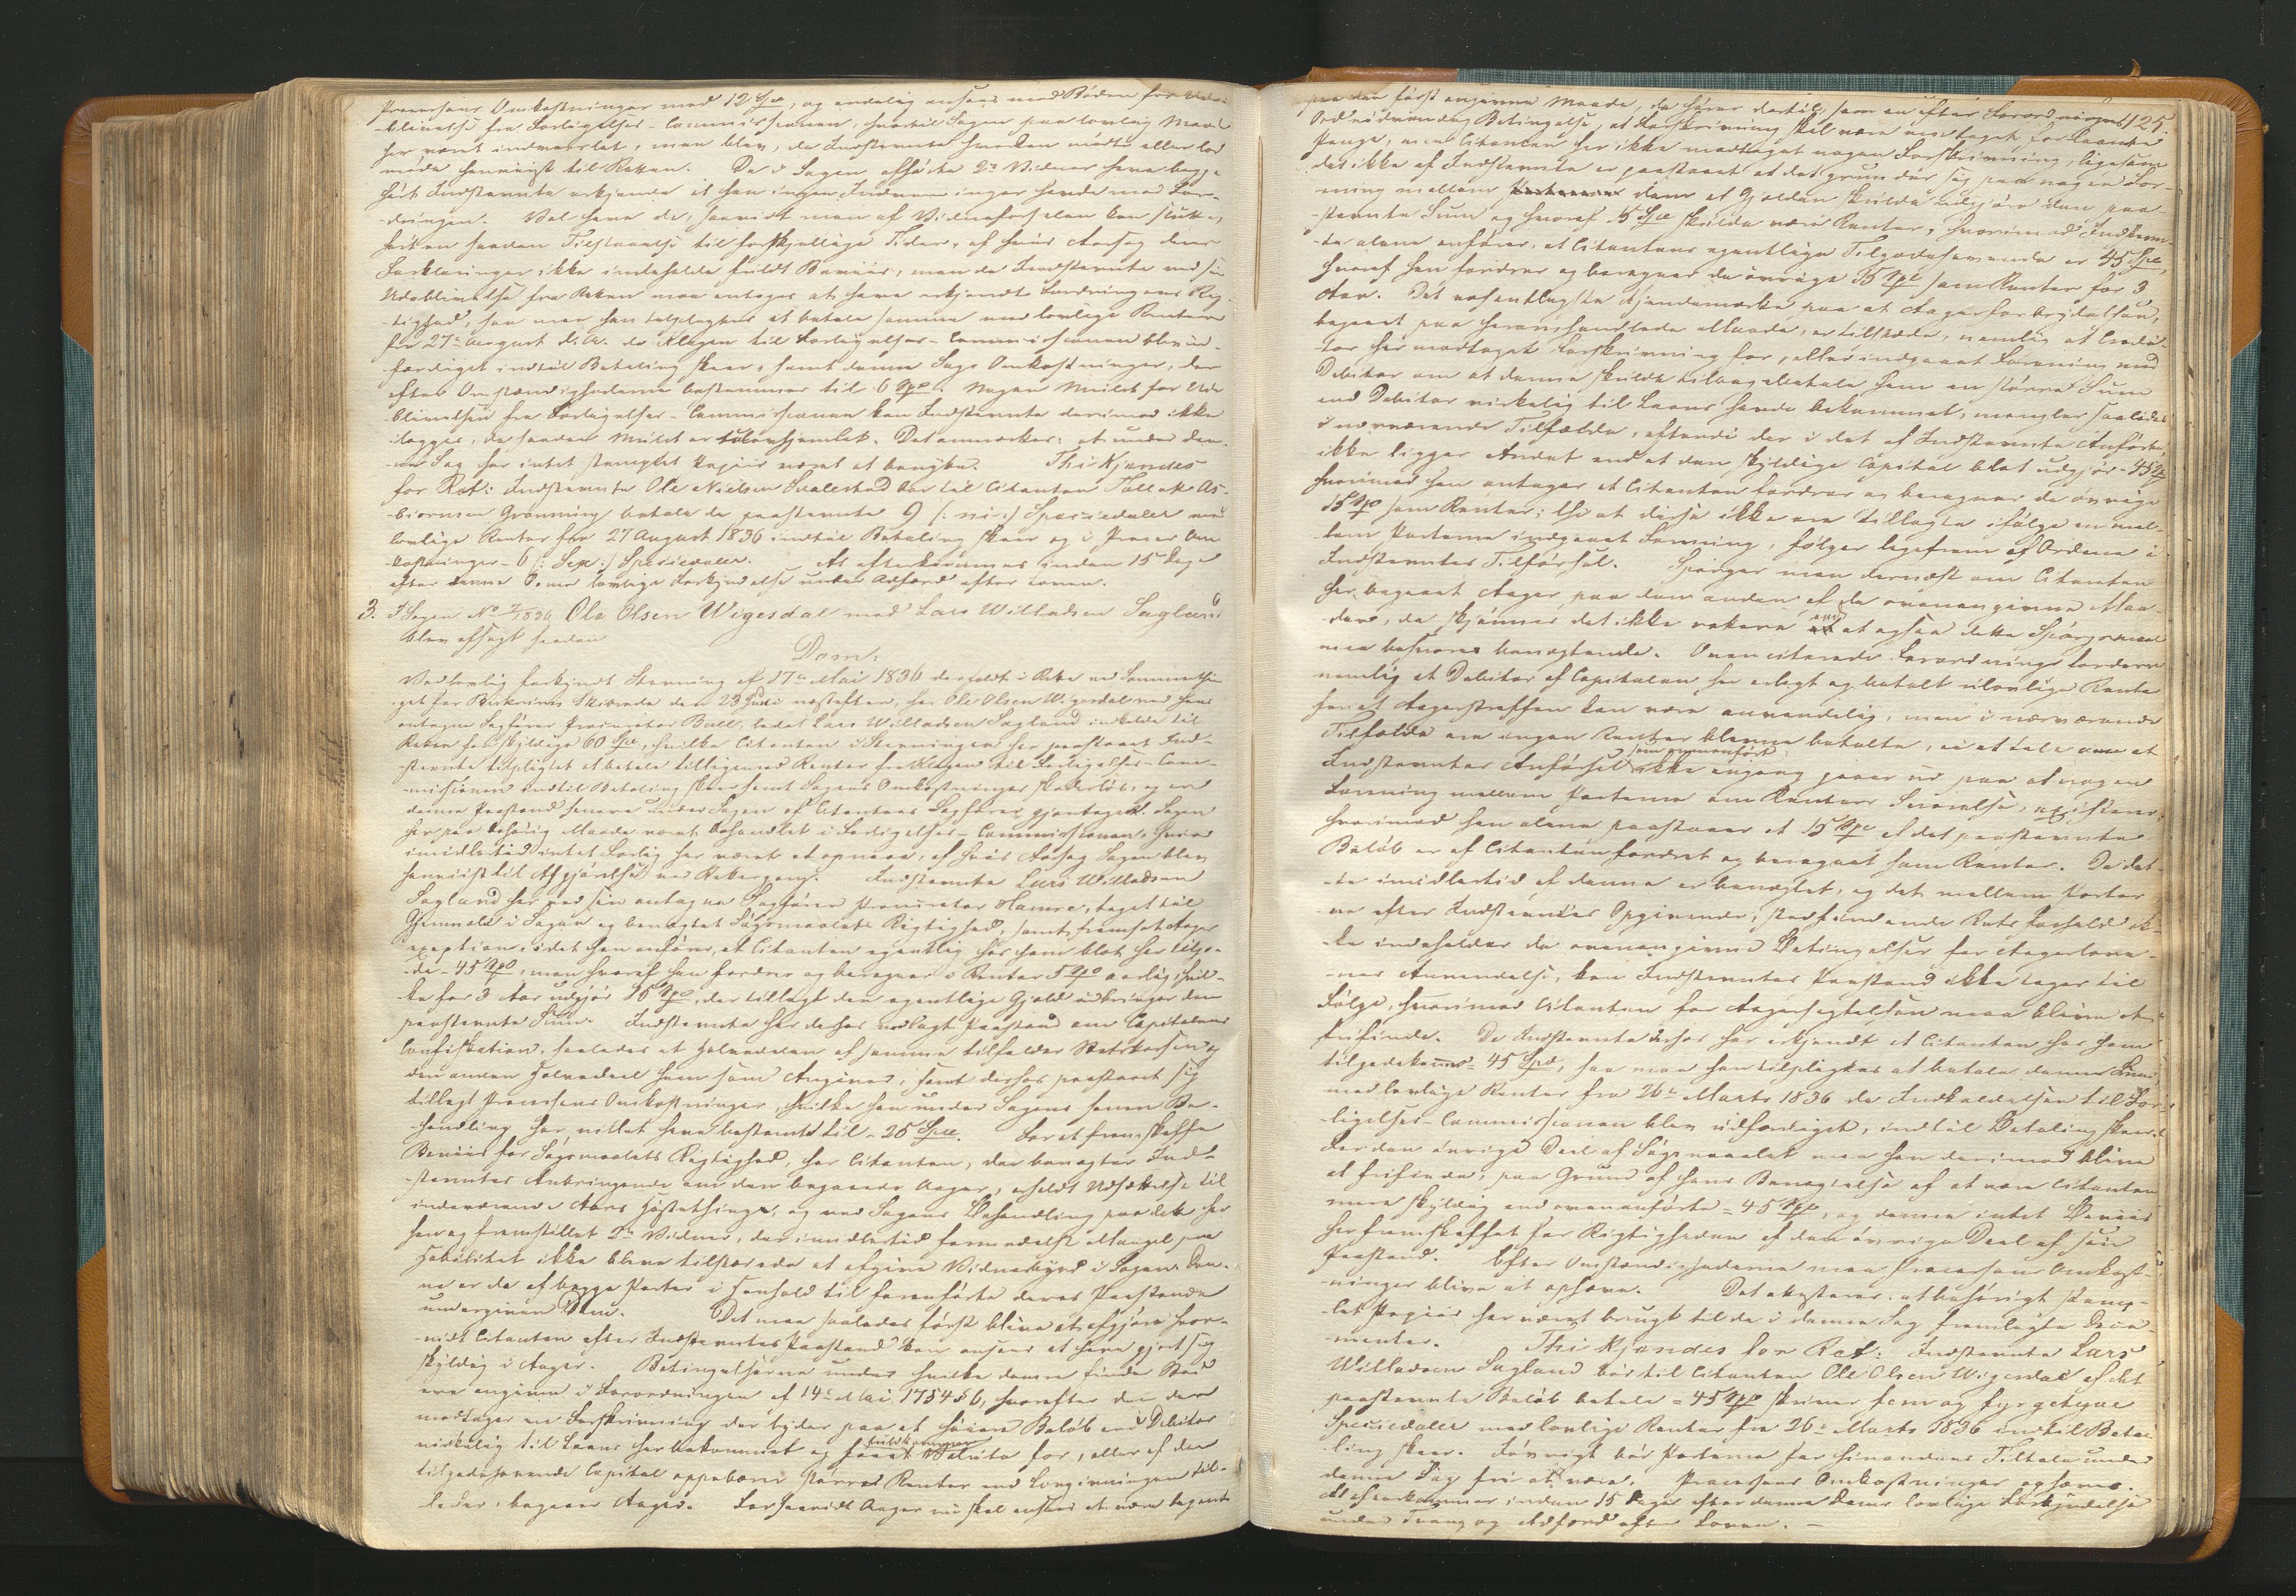 Processens Omkostninger med 12 Spd, og endelig ansees med Bøder for Ude-
-blivelse fra Forligelses-Commissionen, hvortil Sagen paa lovlig Maade
har været indvarslet, men blev, da Indstevnte hverken mødte eller lod
møde henviist til Retten. De i Sagen afhørte 2de Vidner have begge
hørt Indstevnte erkjende at han ingen Indvendinger havde mod For-
-dringen. Vel have de, saavidt man af Vidneførselen kan slutte,
hørt en saadan Tilstaaelse til forskjellige Tider, af hvis Aarsag deres
Forklaringer ikke indeholde fuldt Beviis, men da Indstevnte ved sin
Udeblivelse fra Retten maa antages at have erkjendt Fordringens Rig-
-tighed, saa maa han tilpligtes at betale samme med lovlige Renter
fra 27de August d. A. da Klagen til Forligelses-Commissionen blev ud-
-færdiget indtil Betaling skeer, samt denne Sags Omkostninger, der
efter Omstændighederne bestemmes til 6 Spd. Nogen Mulct for Ude
blivelsen fra Forligelses-Commissionen kan Indstevnte derimod ikke
ilægges, da saadan Mulct er ulovhjemlet. Det anmærkes: at under den-
-ne Sag har intet stemplet Papiir været at benytte. Thi Kjendes
for Ret: Indstevnte Ole Nielsen Svalestad bør til Citanten Tollak As-
-biørnsen Grønning betale de paastevnte 9 /: ni :/ Speciedaler med
lovlige Renter fra 27 August 1836 indtil Betaling skeer og i Proces Om
kostninger 6 /: sex :/ Speciedaler. At efterkommes inden 15 Dage
efter denne Doms lovlige Forkyndelse under Adfærd efter Loven.
3. I Sagen No 7/1836, Ole Olsen Wigesdal mod Lars Willadsen Sagland
blev afsagt saadan
Dom:
Ved lovlig forkyndt Stevning af 17de Mai 1836 der faldt i Rette ved Sommerthin-
get for Birkrems Skibrede den 23 Juni næstefter, har Ole Olsen Wigesdal ved hans
antagne Sagfører Procurator Bull, ladet Lars Willadsen Sagland indkalde til
Retten for skyldige 60 Spd, hvilke Citanten i Stevningen har paastaaet Ind-
-stevnte tilpligtet at betale tilligemed Renter fra Klagen til Forligelses-Com-
-missionen indtil Betaling skeer samt Sagens Omkostninger skadesløs, og er
denne Paastand senere under Sagen af Citantens Sagfører gjentaget. Sagen
har paa behørig Maade været behandlet i Forligelses-Commissionen, hvor
imidlertid intet Forlig har været at opnaae, af hvis Aarsag Sagen blev
henviist til Afgjørelse ved Rettergang. Indstevnte Lars Willadsen
Sagland har ved sin antagne Sagfører Procurator Hamre, taget til
Gjenmæle i Sagen og benægtet Søgsmaalets Rigtighed, samt fremsat Aager
exeption, idet han anfører, at Citanten egentlig hos ham blot har tilgo-
-de 45 Spd, men hvoraf han fordrer og beregner i Renter 5 Spd aarlig, hvil-
-ke for 3 Aar udgjør 15 Spd, der tillagt den egentlige Gjæld udbringer den
paastevnte Sum. Indstevnte har derhos nedlagt Paastand om Capitalens
Confiskation, saaledes at Halvdelen af samme tilfalder Statskassen og
den anden Halvdeel ham som Angiver, samt derhos paastaaet sig
tillagt Processens Omkostninger, hvilke han under Sagens senere Be-
-handling har villet have bestemt til 25 Spd. For at fremskaffe
Beviis for Søgsmaalets Rigtighed, har Citanten, der benægter Ind-
-stevntes Anbringende om den begaaede Aager, erholdt Udsættelse til
indeværende Aars Høstething, og ved Sagens Behandling paa dette har
han og fremstillet 2de Vidner, der imidlertid formedelst Mangel paa
Habilitet ikke bleve tilstædede at afgive Vidnesbyrd i Sagen. Den-
ne er da af begge Parter i Henhold til foranførte deres Paastande
undergiven Dom. Det maa saaledes først blive at afgjøre hvor-
-vidt Citanten efter Indstevntes Paastand kan ansees at have gjort sig
skyldig i Aager. Betingelserne under hvilke denne finde Sted
ere angivne i Forordningen af 14de Mai 1754 § 6, hvorefter den der
modtager en Forskrivning der lyder paa et høiere Beløb end Debitor
virkelig til Laans har bekommet og faaet fuldkommen Valuta for, eller af den
tilgodehavende Capital oppebærer større Renter end Lovgivningen til-
lader, begaaer Aager. Forsaavidt Aager nu skal ansees at være begaaet
125.
paa den først angivne Maade, da hører dertil, som en efter Forordningens
Ord nødvendig Betingelse, at Forskrivning skal være modtaget for laante
Penge, men Citanten har ikke modtaget nogen Forskrivning, ligesom
det ikke af Indstevnte er paastaaet at det grunder sig paa nogen For-
-ening mellem dem at Gjælden skulde udgjøre den paa-
-stevnte Sum og hvoraf 15 Spd skulde være Renter, hvorimod Indstevn-
-te alene anfører, at Citantens egentlige Tilgodehavende er 45 Spd,
hvoraf han fordrer og beregner de øvrige 15 Spd som Renter for 3
Aar. Det væsentligste Kjendemærke paa at Aager forbrydelsen,
begaaet paa heromhandlede Maade, er tilstæde, nemlig at Credi-
-tor har modtaget Forskrivning for, eller indgaaet Forening med
Debitor om at denne skulde tilbagebetale ham en større Sum
end Debitor virkelig til Laans havde bekommet, mangler saaledes
i nærværende Tilfælde, eftersom der i det af Indstevnte Anførte
ikke ligger Andet end at den skyldige Capital blot udgjør 45 Spd
hvorimod han antager at Citanten fordrer og beregner de øvrige
15 Spd som Renter; thi at disse ikke ere tillagte ifølge en mel-
lem Parterne indgaaet Forening, følger ligefrem af Ordene i
Indstevntes Tilførsel. Spørger man dernæst om Citanten
har begaaet Aager paa den anden af de ovenangivne Maa-
-der, da skjønnes det ikke rettere end at ogsaa dette Spørgsmaal
maa besvares benægtende. Ovenciterede Forordning fordrer
nemlig at Debitor af Capitalen har erlagt og betalt ulovlige Rente
førend Aagerstraffen kan være anvendelig, men i nærværende
Tilfælde ere ingen Renter blevne betalte, ei at tale om at
Indstevntes Anførsel som ovenanført ikke engang gaaer ud paa at nogen
Forening mellem Parterne om Renters Svarelse, existerer,
hvorimod han alene paastaaer at 15 Spd af det paastevnte
Beløb er af Citanten fordret og beregnet som Renter. Da det-
-te imidlertid af denne er benægtet, og det mellem Parter
ne efter Indstevntes Opgivende, stedfindende Rets forhold ik-
-ke indeholder de ovenangivne Betingelser for Aagerlove-
-nes Anvendelse, kan Indstevntes Paastand ikke tages til
Følge, hvorimod Citanten for Aagersigtelsen maa blive at
frifinde. Da Indstevnte derhos har erkjendt at Citanten hos ham
tilgodekommer 45 Spd, saa maa han tilpligtes at betale denne Sum
med lovlige Renter fra 26de Marts 1836 da Indkaldelsen til For-
-ligelses-Commissionen blev udfærdiget, indtil Betaling skeer.
For den øvrige Deel af Søgsmaalet maa han derimod blive
at frifinde, paa Grund af hans Benægtelse af at være Citanten
mere skyldig end ovenanførte 45 Spd, og denne intet Beviis
har fremskaffet for Rigtigheden af den øvrige Deel af sin
Paastand. Efter Omstændighederne maa Processens Omkost-
-ninger blive at ophæve. Det attesteres: at behørigt stemp-
-let Papiir har været brugt til de i denne Sag fremlagte Docu-
-menter. Thi Kjendes for Ret: Indstevnte Lars
Willadsen Sagland bør til Citanten Ole Olsen Wigesdal af det
paastevnte Beløb betale 45 Spd skriver fem og fyrgetyve
Speciedaler med lovlige Renter fra 26de Marts 1836 indtil Beta-
-ling skeer. Iøvrigt bør Parterne for hinandens Tiltale under
denne Sag frie at være. Processens Omkostninger ophæves.
At efterkommes inden 15 Dage efter denne Doms lovlige Forkyndelse
under Tvang og Adfærd efter Loven.